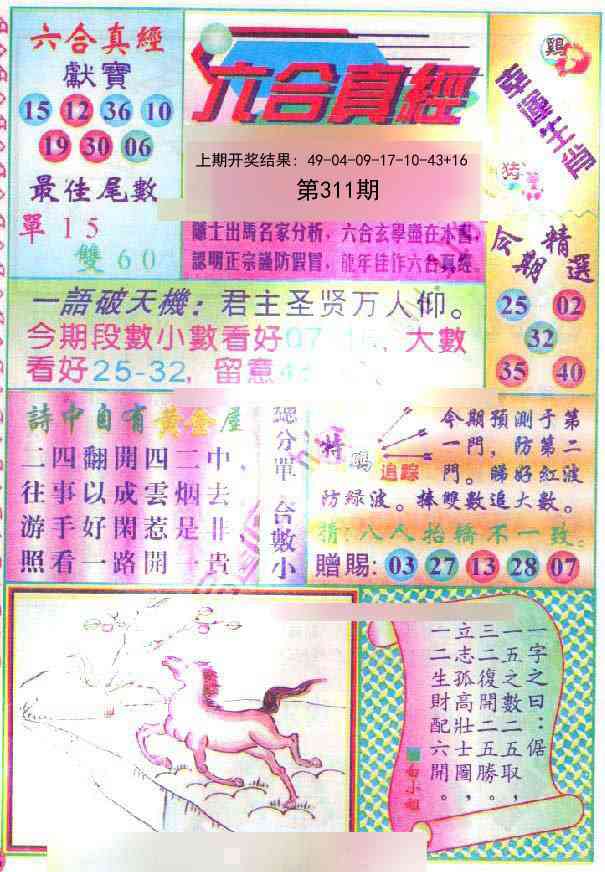 六合真經
獻寶
15 12 36 10
19 30 06
最佳尾數
單15
雙60
六合真經
上期开奖结果：49-04-09-17-10-43+16
第311期
隱士出馬名家分析，六合玄學盡在本書，
認明正宗謹防假冒，龍年佳作六合真經。
鷄
幸運生肖
猪
今期
精選
25 02
32
35 40
一語破天機：君主圣贤万人仰。
今期段數小數看好07-16，大數
看好25-32，留意4
詩中自有黃金屋
二四翻開四二中，
往事以成雲烟去
游手好閑惹是非，
照看一路開一貴
總分單 合數小
特碼
追踪
今期預測于第
一門，防第二
門。睇好紅波
防綠波。捧雙數追大數。
猜：八人抬轎不一致。
贈賜：03 27 13 28 07
一字之曰：倨
一五之數二五取，
三二復開二五勝。
立志孤高壯士圖，
一二生財配六開。
白小姐